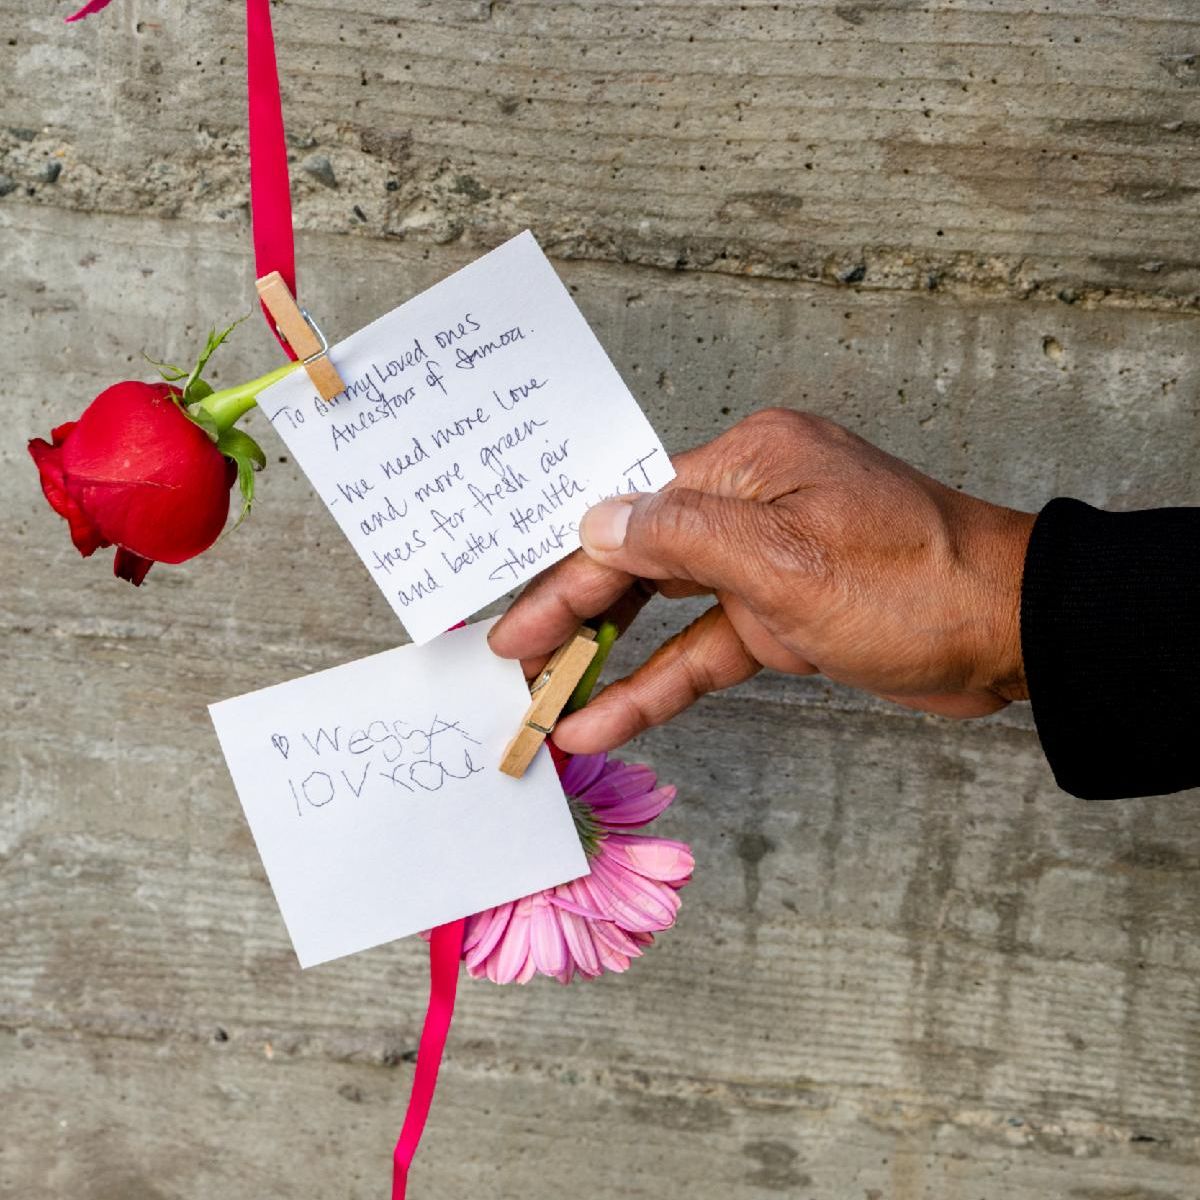 To All my Loved ones
Ancestors of Samoa.
- We need more love
and more green
trees for fresh air
and better Health.
Thanks
♡ WeggA
lovxou